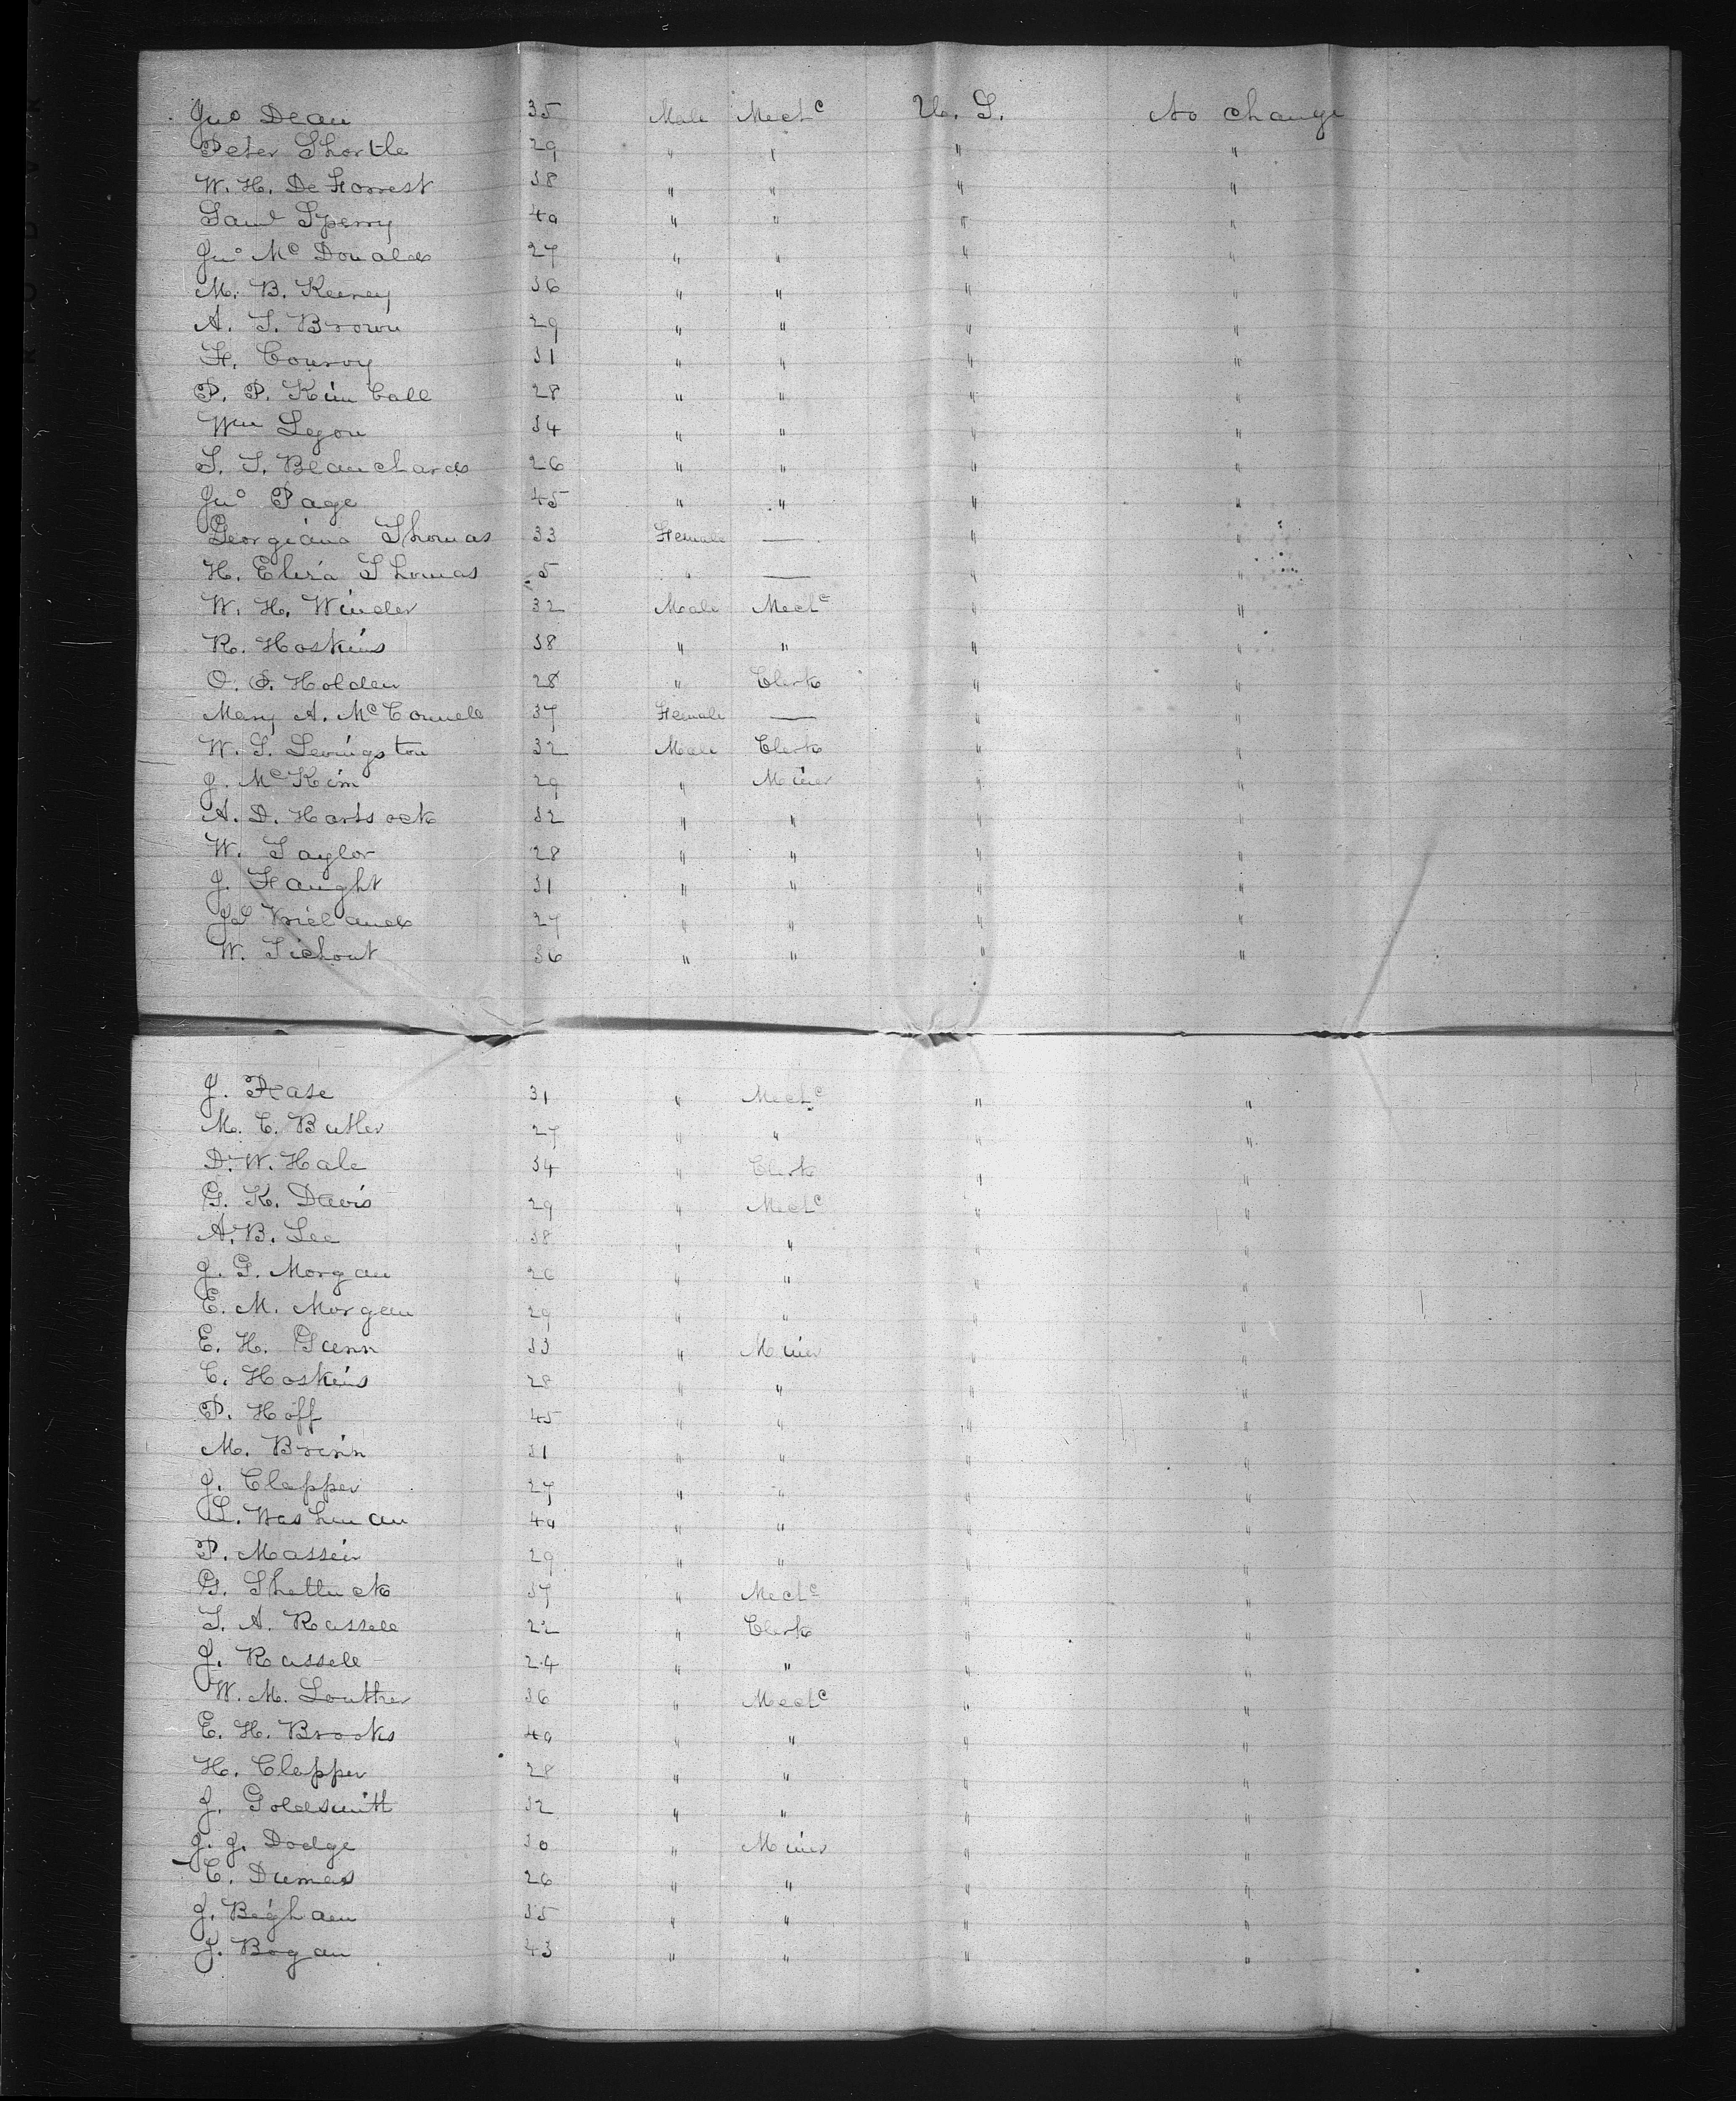 Jno Dean 35 Male Mechc U. S. No change
Peter Shortle 29 " " " "
W. H. De Forrest 38 " " " "
Saml Sperry 40 " " " "
Jno Mc Donald 27 " " " "
M. B. Keeney 36 " " " "
A. S. Brown 29 " " " "
F. Conroy 31 " " " "
P. P. Kimball 28 " " " "
Wm Legon 34 " " " "
S. S. Blanchard 26 " " " "
Jno Page 45 " " " "
Georgiana Thomas 33 Female — " "
H. Eliza Thomas 5 " — " "
W. H. Winder 32 Male Mechc " "
R. Hoskins 38 " " " "
O. S. Holden 28 " Clerk " "
Mary A. McConnell 37 Female — " "
W. S. Levingston 32 Male Clerk " "
J. McKim 29 " Miner " "
A. D. Hartsock 32 " " " "
W. Taylor 28 " " " "
J. Faught 31 " " " "
Vrieland 27 " " " "
W. Tichout 36 " " " "
J. Fease 31 " Mechc " "
M. C. Butler 27 " " " "
D. W. Hale 34 " Clerk " "
G. K. Davis 29 " Mechc " "
A. B. Lee 38 " " " "
J. G. Morgan 26 " " " "
E. M. Morgan 29 " " " "
E. H. Gunn 33 " Miner " "
C. Hoskins 28 " " " "
P. Hoff 45 " " " "
M. Brinin 31 " " " "
J. Clapper 27 " " " "
L. Washman 40 " " " "
P. Massein 29 " " " "
G. Shattuck 37 " Mechc " "
T. A. Russell 22 " Clerk " "
J. Russell 24 " " " "
W. M. Louther 36 " Mechc " "
E. H. Brooks 40 " " " "
H. Clapper 28 " " " "
J. Goldsmith 32 " " " "
J. J. Dodge 30 " Miner " "
C. Dumas 26 " " " "
J. Bigham 35 " " " "
J. Bogan 43 " " " "